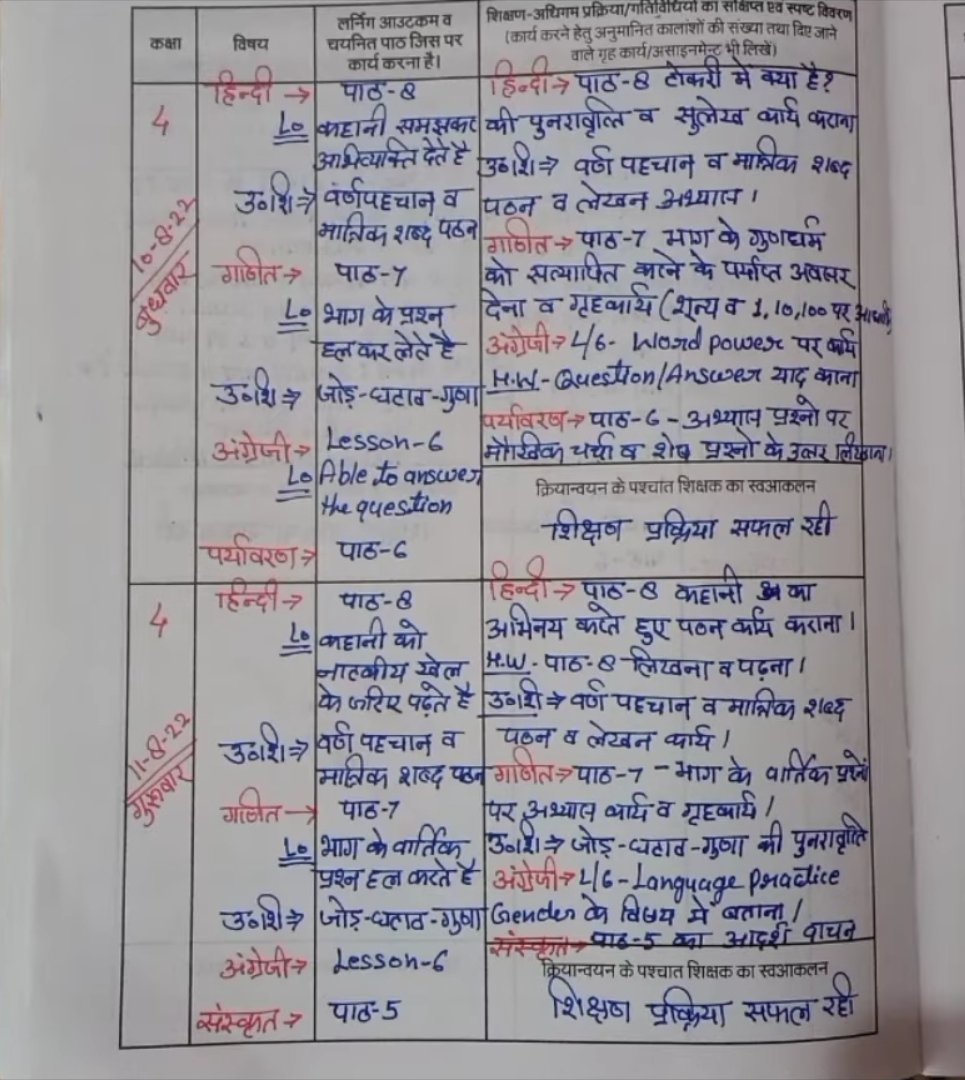 कक्षा
विषय
लर्निग आउटकम व
चयनित पाठ जिस पर
कार्य करना है।
शिक्षण-अधिगम प्रक्रिया/गतिविधियों का संक्षिप्त एवं स्पष्ट विवरण
(कार्य करने हेतु अनुमानित कालांशों की संख्या तथा दिए जाने
वाले गृह कार्य/असाइनमेन्ट भी लिखें)
4
10-8-22
बुधवार
हिन्दी → पाठ-8
Lo कहानी समझकर
अभिव्यक्ति देते है
उ०शि⇒ वर्णपहचान व
मात्रिक शब्द पठन
गणित→ पाठ-7
Lo भाग के प्रश्न
हल कर लेते है
उ०शि⇒ जोड़-घटाव-गुणा
अंग्रेजी→ Lesson-6
Lo Able to answer
the question
पर्यावरण→ पाठ-6
हिन्दी→ पाठ-8 टोकरी में क्या है?
की पुनरावृत्ति व सुलेख कार्य कराना
उ०शि⇒ वर्ण पहचान व मात्रिक शब्द
पठन व लेखन अभ्यास।
गणित→ पाठ-7 भाग के गुणधर्म
को सत्यापित करने के पर्याप्त अवसर
देना व गृहकार्य (शून्य व 1,10,100 पर
अंग्रेजी→ L/6- Word power पर कार्य
H.W- Question/Answer याद करना
पर्यावरण→ पाठ-6 - अभ्यास प्रश्नो पर
मौखिक चर्चा व शेष प्रश्नो के उत्तर लिखाना।
क्रियान्वयन के पश्चात शिक्षक का स्वआकलन
शिक्षण प्रक्रिया सफल रही
4
11-8-22
गुरूवार
हिन्दी→ पाठ-8
Lo कहानी को
नाटकीय खेल
के जरिए पढ़ते है
उ०शि⇒ वर्ण पहचान व
मात्रिक शब्द पठन
गणित→ पाठ-7
Lo भाग के वार्तिक
प्रश्न हल करते है
उ०शि⇒ जोड़-घटाव-गुणा
अंग्रेजी→ Lesson-6
संस्कृत→ पाठ-5
हिन्दी→ पाठ-8 कहानी का
अभिनय करते हुए पठन कार्य कराना।
H.W- पाठ-8 लिखना व पढ़ना।
उ०शि⇒ वर्ण पहचान व मात्रिक शब्द
पठन व लेखन कार्य।
गणित→ पाठ-7 - भाग के वार्तिक प्रश्नों
पर अभ्यास कार्य व गृहकार्य।
उ०शि⇒ जोड़-घटाव-गुणा की पुनरावृति
अंग्रेजी→ L/6-Language practice
Gender के विषय में बताना।
संस्कृत→ पाठ-5 का आदर्श वाचन
क्रियान्वयन के पश्चात शिक्षक का स्वआकलन
शिक्षण प्रक्रिया सफल रही